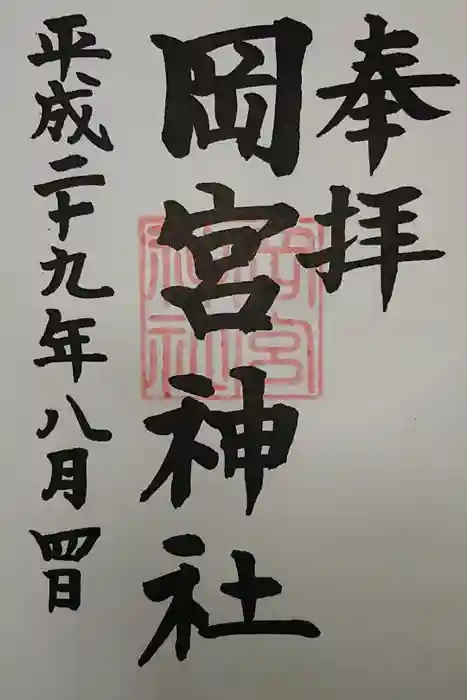 奉拝
岡宮神社
平成二十九年八月四日
岡宮神社